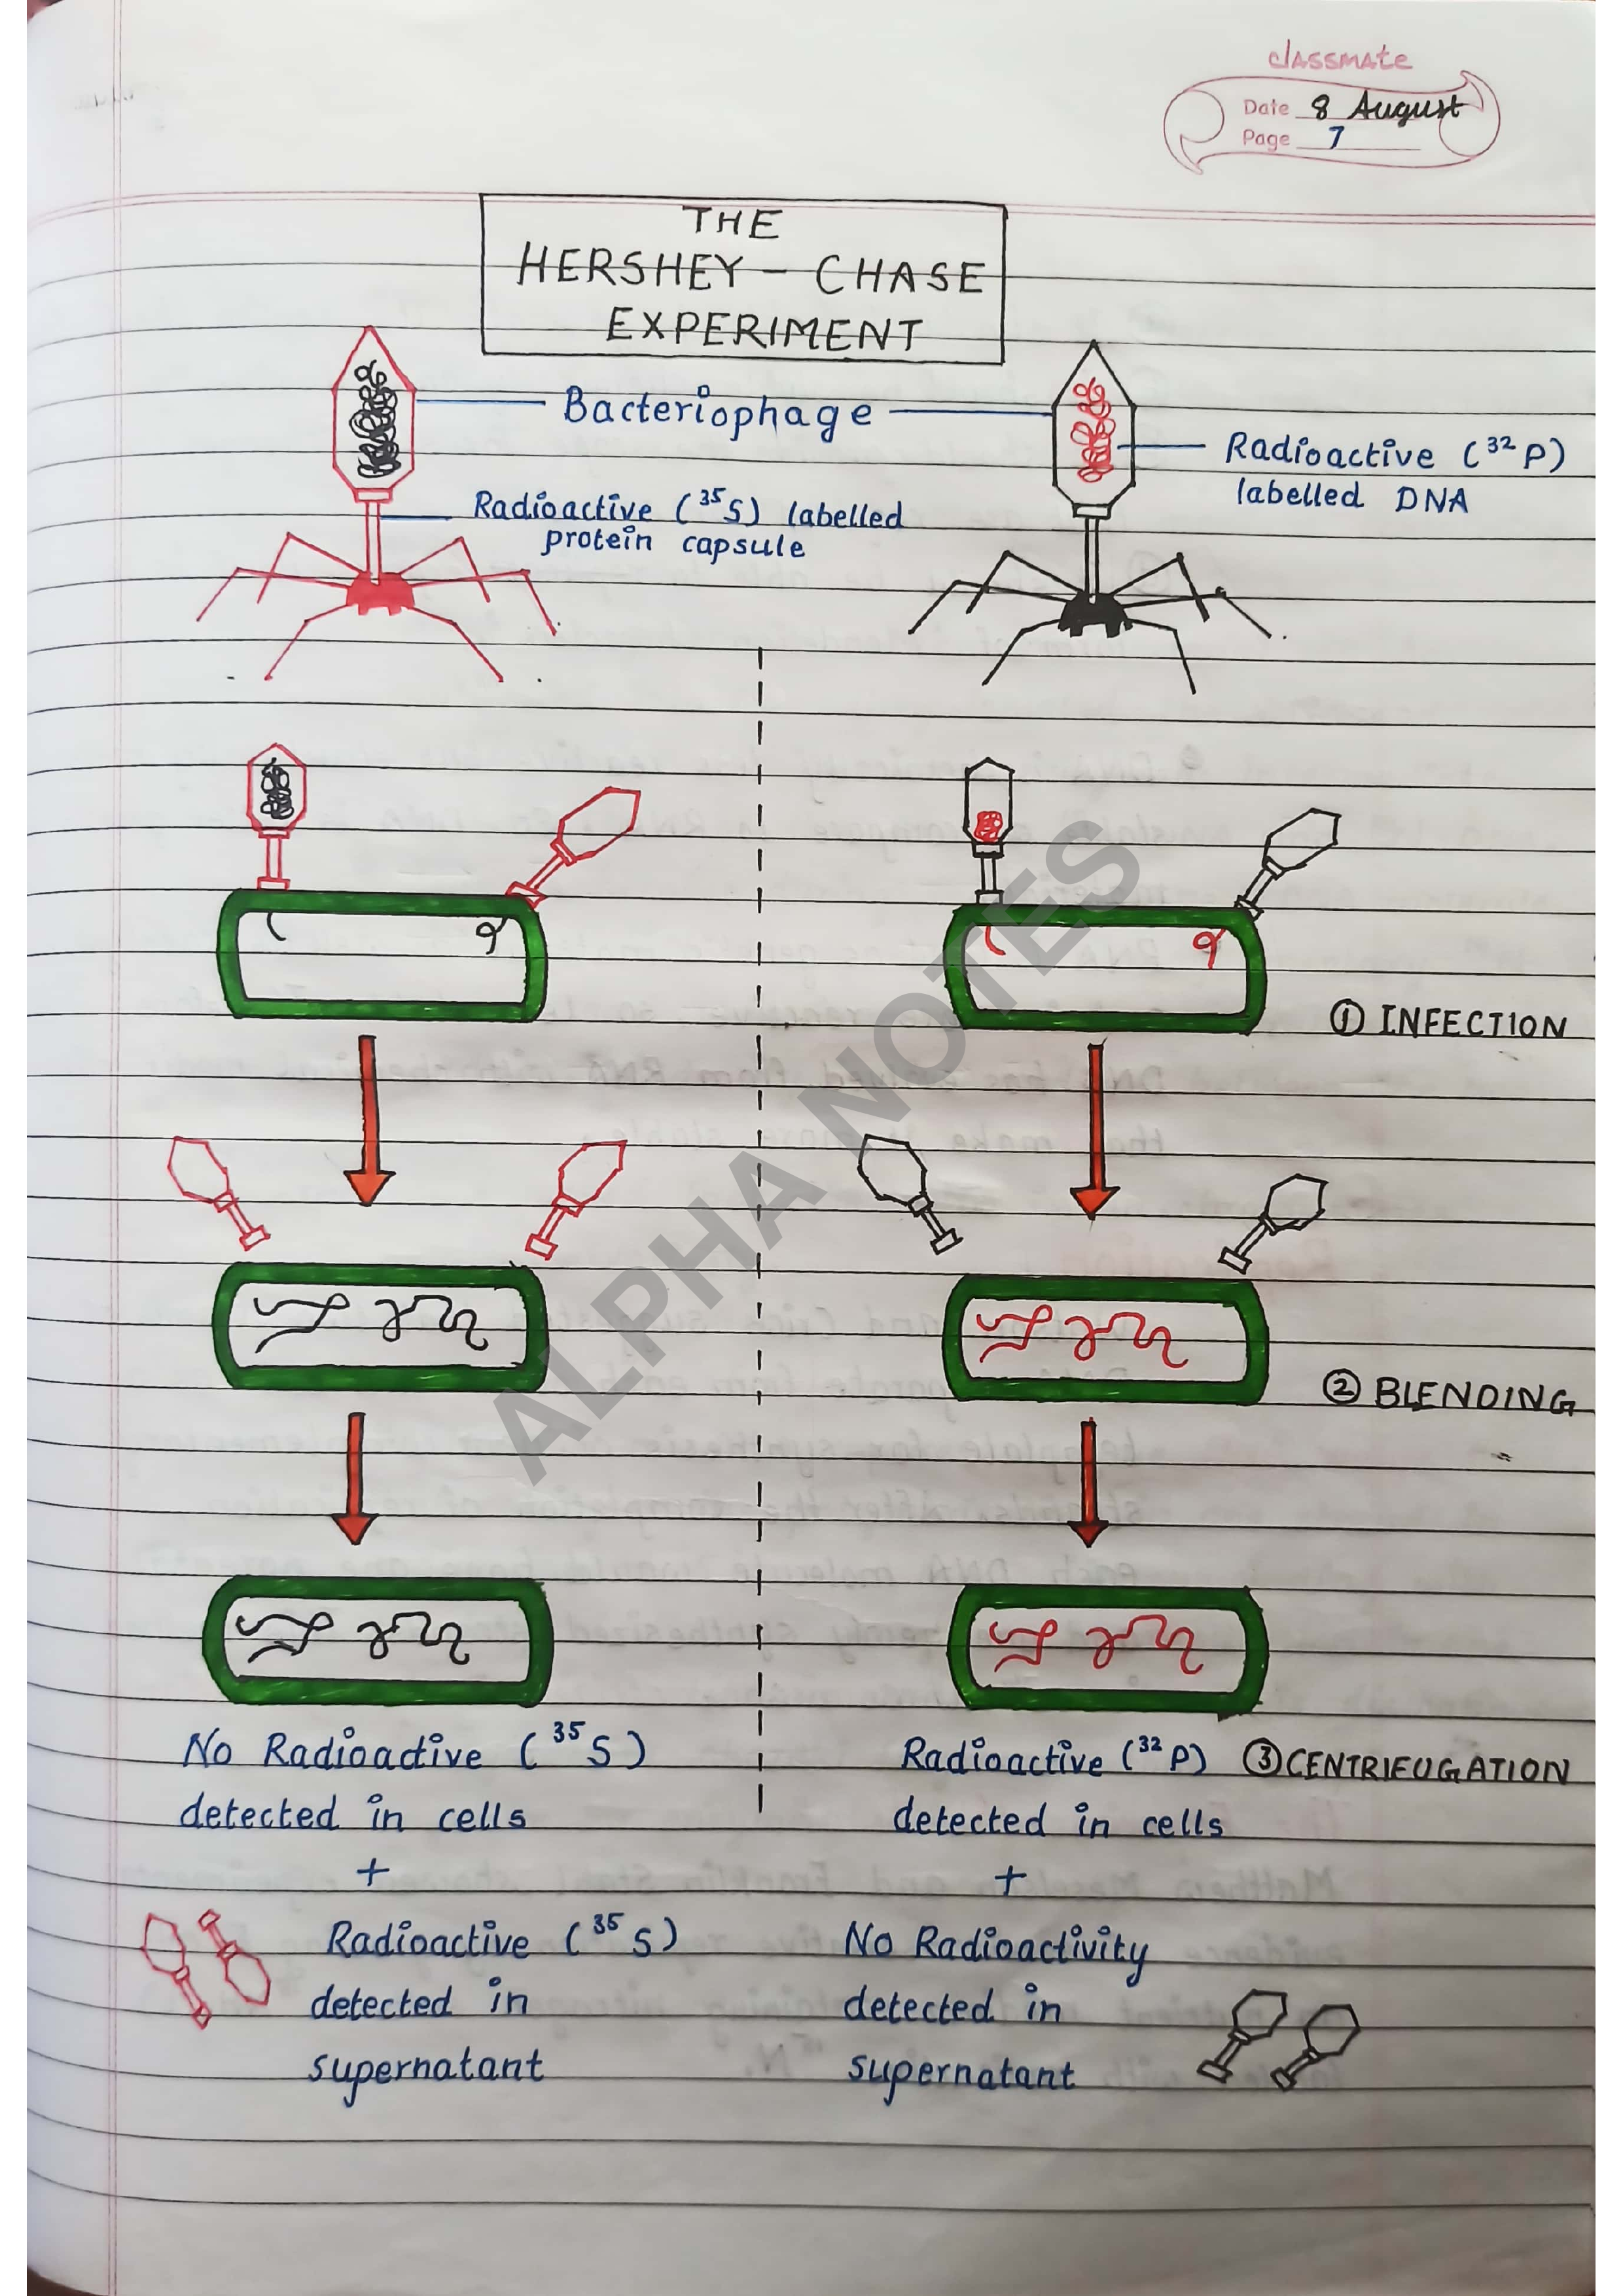 classmate
Date 8 August
Page 7
THE
HERSHEY – CHASE
EXPERIMENT
Bacteriophage
Radioactive (³²P)
labelled DNA
Radioactive (³⁵S) labelled
protein capsule
① INFECTION
② BLENDING
No Radioactive (³⁵S)
detected in cells
+
Radioactive (³⁵S)
detected in
supernatant
Radioactive (³²P)
detected in cells
+
No Radioactivity
detected in
supernatant
③ CENTRIEUGATION
ALPHA NOTES